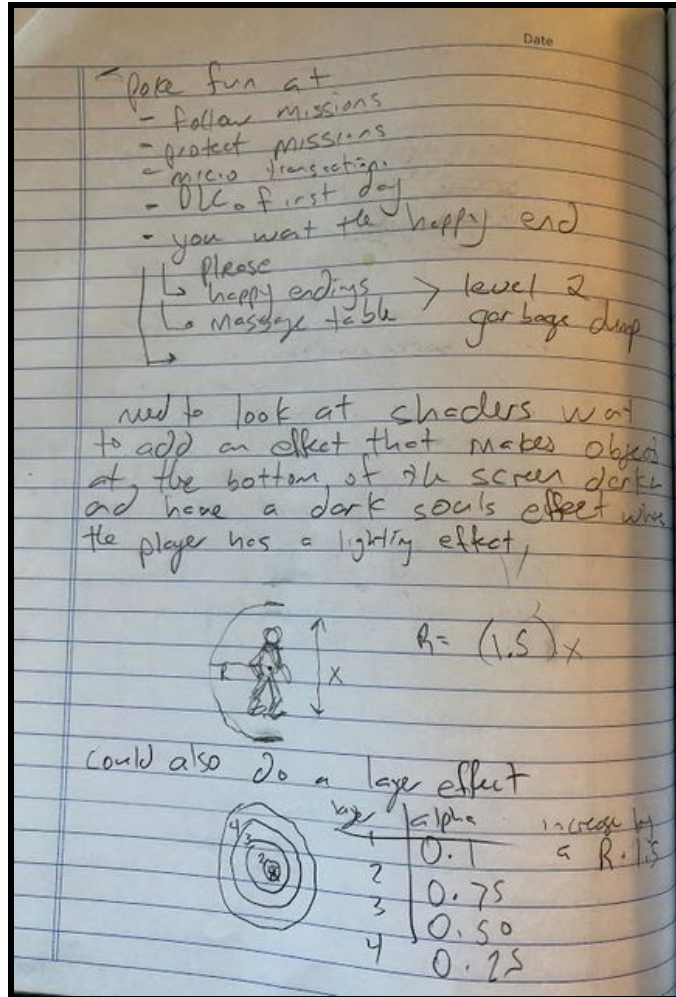 Date
Poke fun at
- follow missions
- protect missions
- micro transactions
- DLC. first day
- you want the happy end
please
happy endings > level 2
massage table garbage dump
need to look at shaders wat
to add an effect that makes objects
at the bottom of the screen darker
ad have a dark souls effect where
the player has a lighting effect,
R
X
R= (1.5)x
could also do a layer effect
layer alpha increase by
1 0.1 a R.1.5
2 0.75
3 0.50
4 0.25
4
3
2